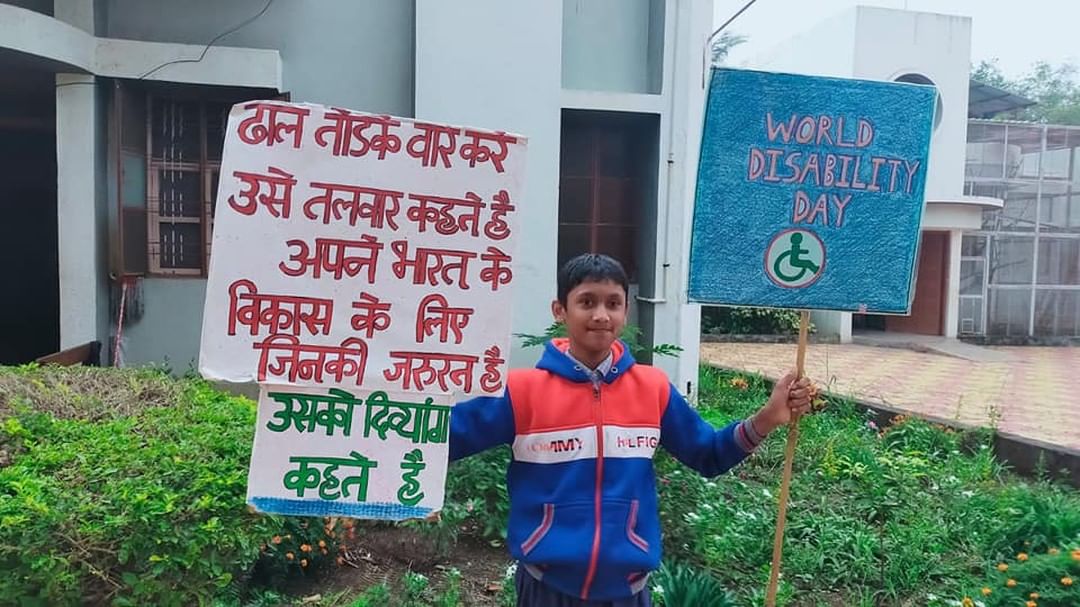 ढाल तोडके वार करे
उसे तलवार कहते है
अपने भारत के
विकास के लिए
जिनकी जरुरत है
उसको दिव्यांग
कहते है
WORLD
DISABILITY
DAY
HILFIG